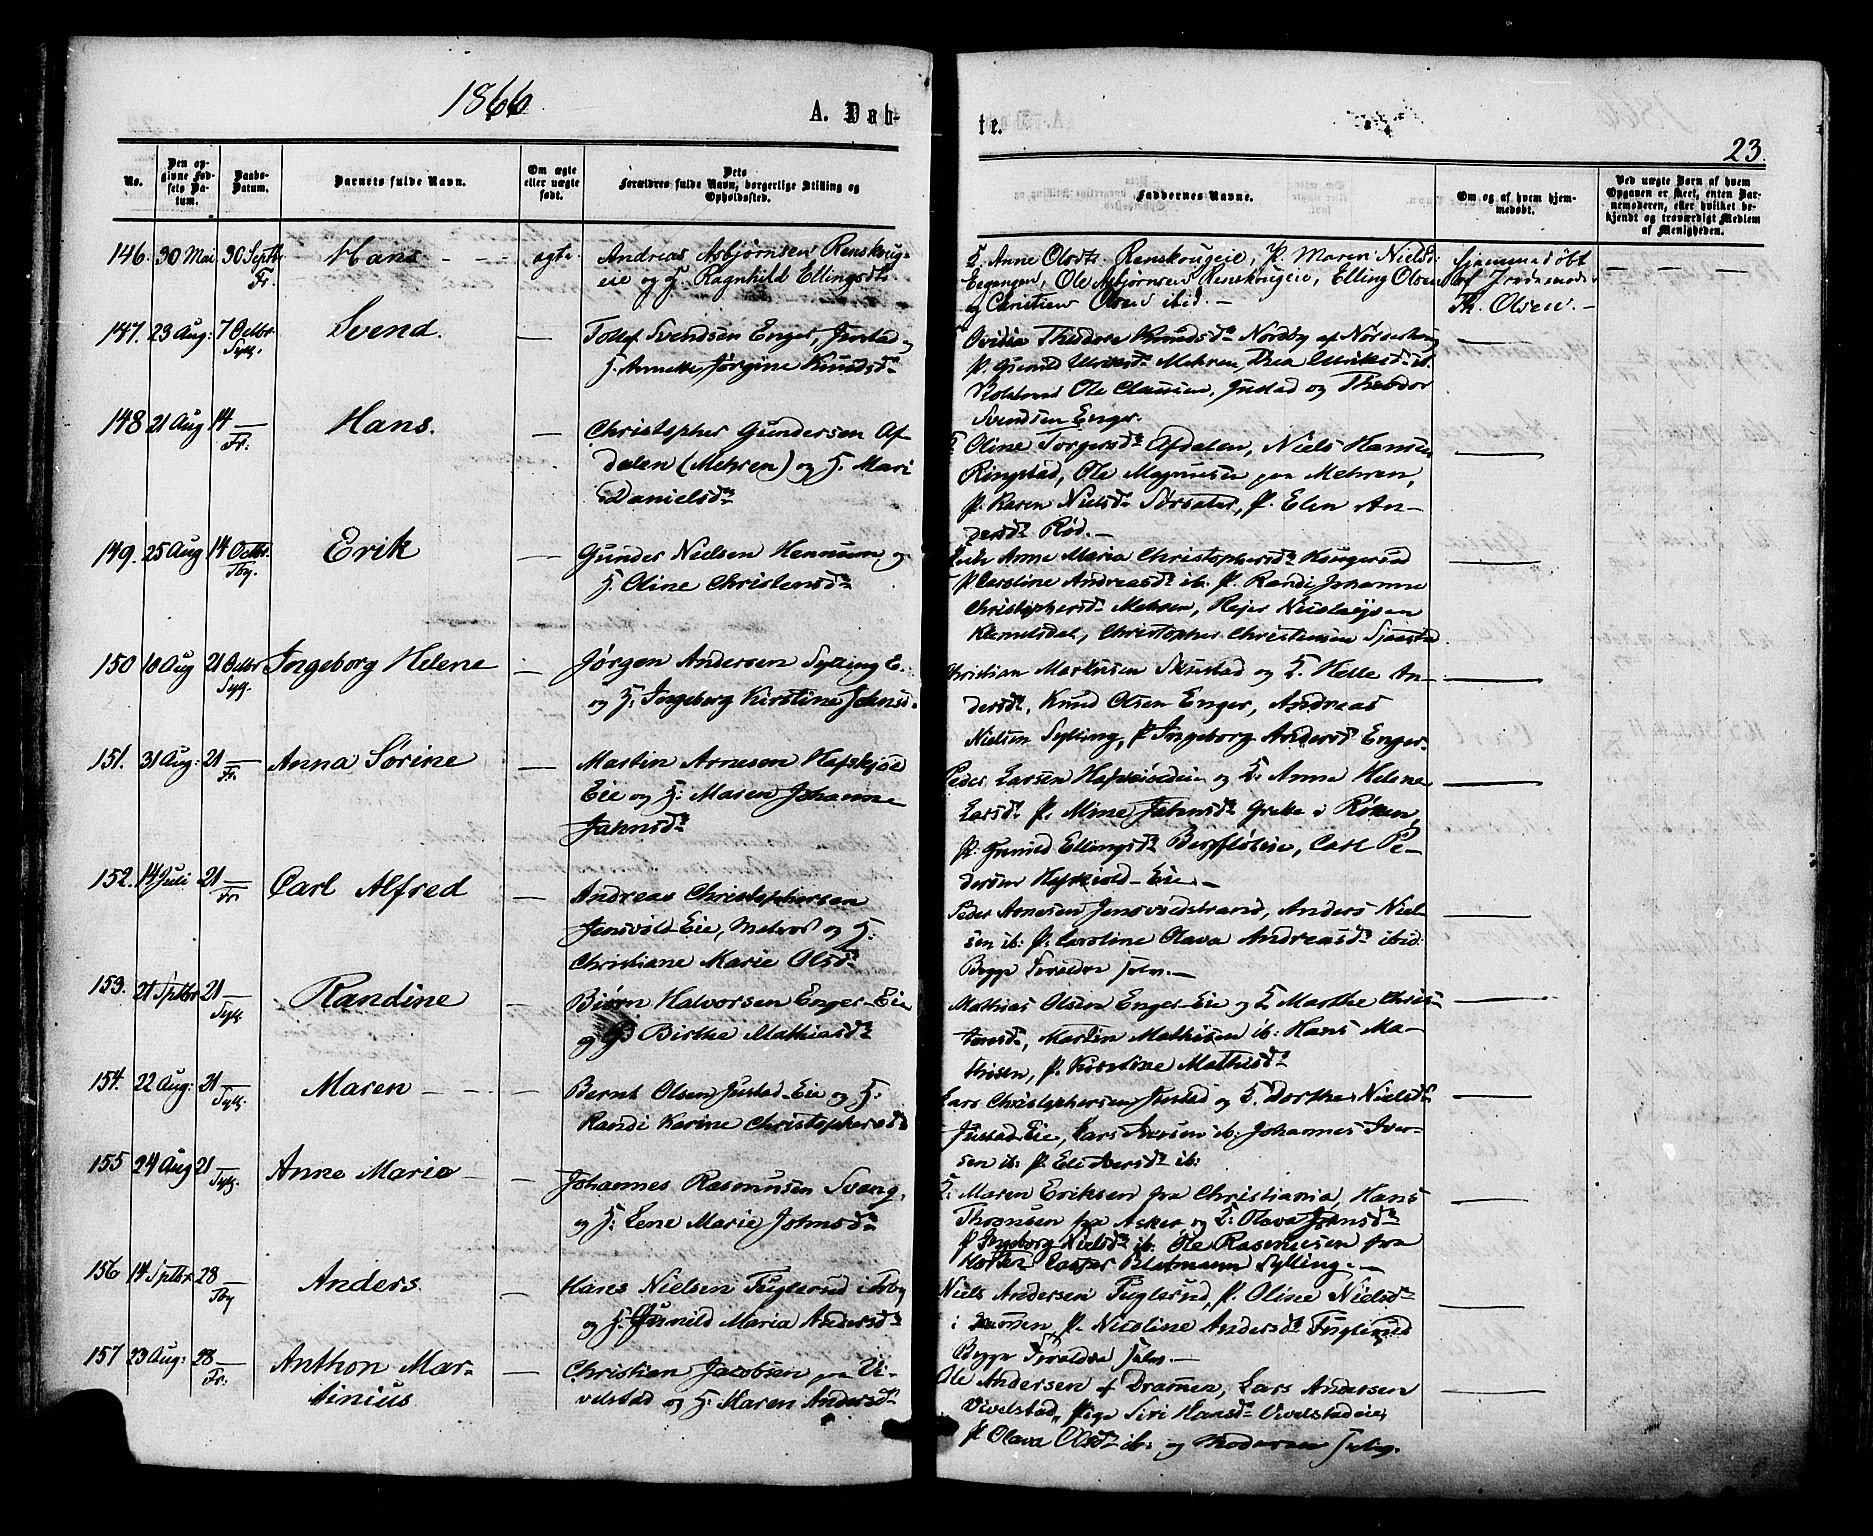 1866
A. Døb-
te.
23.
No.
Den op-
givne Fød-
sels Da-
tum.
Daabs-
Datum.
Barnets fulde Navn.
Om ægte
eller uægte
født.
Dets
Forældres fulde Navn, borgerlige Stilling og
Opholdssted.
Faddernes Navne.
Om og af hvem hjem-
medøbt.
Ved uægte Børn af hvem
Opgaven er skeet, enten Bar-
nemoderen, eller hvilket be-
kjendt og troværdigt Medlem
af Menigheden.
146. 30 Mai 30 Septbr Fr. Hans ægte
Andreas Asbjørnsen Renskoug-
eie og H. Ragnhild Ellingsdtr
K. Anne Olsdtr Renskougeie, P. Maren Nielsd.
Ole Asbjørnsen Renskougeie, Elling Olsen
og Christian Olsen ibid. —
Hjemmedøbt
af Jordemoder
Th. Olsen. —
147. 23 Aug: 7 Octbr. Syll. Svend. —
Tollef Svendsen Enger, Justad og
H. Annette Jørgine Knudsdr
Ovidia Theodora Knudsdr Nordby af Nørderhoug
P. Gunild Mehren, Thea
Ole Claussen, Justad og Theodor
Svendsen Enger.
148 21 Aug 14 — Fr. Hans. —
Christopher Gundersen Af-
dalen (Mehren) og H. Mari
Danielsdr
K. Oline Torgersdr Afdalen, Niels Hansen
Ringstad, Ole Magnusen paa Mehren,
P. Karen Nielsdr Sørsater, P. Elen An-
dersdr Rød. —
149. 25 Aug 14 Octbr. Tby. Erik —
Gunder Nielsen Hennum og
H. Oline Christensdr
Anne Maria Christophersdr Kougerud
P. Caroline Andreasdr ib: P. Randi Johanne
Christophersdr Mehren, Rejer Nicolaysen
Klemetsdal, Christopher Christensen Sjaastad
150 18 Aug 21 Octbr Syll. Ingeborg Helene —
Jørgen Andersen Sylling E.
og H. Ingeborg Kirstine Johnsd.
Christian Markusen Skustad og K. Helle An-
dersdr, Knud Olsen Enger, Andreas
Nielsen Sylling, P. Ingeborg Andersd Enger.
151. 31 Aug: 21 — Fr. Anna Sørine —
Martin Arnesen Hafskjold
Eie og H: Maren Johanne
Jahnsdr
Peder Larsen og K. Anna Helene
Larsdr P. Mine Jahnsdr Grette i Røken,
P. Gunild Ellingsdr Bergfløteie, Carl Pe-
dersen Hafskjold-Eie. —
152. 14 Juli 21 — Fr. Carl Alfred —
Andreas Christophersen
Jensvold-Eie, og H:
Christiane Marie Olsdr
Peder Arnesen Jensvoldstrand, Anders Niel-
sen ib: P. Caroline Olava Andreasdr ibid:
Begge Forældre selv. —
153. 21 Sptbr 21 — Syll. Randine —
Biørn Halvorsen Enger-Eie
og H Birthe Mathiasdr
Mathias Olsen Enger-Eie og K Marthe Chris-
tensdr, Martin Mathisen ib: Hans Ma-
thisen, P. Kirstine Mathisdr
154. 22 Aug: 21 — Syll. Maren —
Bernt Olsen Justad-Eie og H.
Randi Karine Christophersdr
Lars Christophersen Justad og K. Dorthe Nielsdr
Justad-Eie, Lars Iversen ib: Johannes Iver-
sen ib: P. Eli Iversdr ib:
155 24 Aug 21 — Syll. Anne Marie —
Johannes Rasmussen Svang,
og H: Lene Marie Johnsdr
K: Maren Eriksen fra Christiania, Hans
Thomsen fra Asker og K: Olava Johnsdr
P. Ingeborg Nielsdr ib. Ole Rasmussen fra
Horten Casper Sylling. —
156 14 Sptbr. 28 — Tby Anders. —
Hans Nielsen Fuglerud i Tby
og H. Gunild Maria Andersdr
Niels Andersen Fuglerud, P. Oline Nielsdr
i Dramen P. Nicoline Andersdr Fuglerud
Begge Forældre selv. —
157 23 Aug: 28 — Fr: Anthon Mar-
tinius —
Christian Jacobsen paa Vi-
velstad og H: Maren Andersdr
Ole Andersen af Dramen, Lars Andersen
Vivelstad, Pige Siri Hansdr Vivelstadeie,
P. Olava Olsdr ib: og Moderen selv.